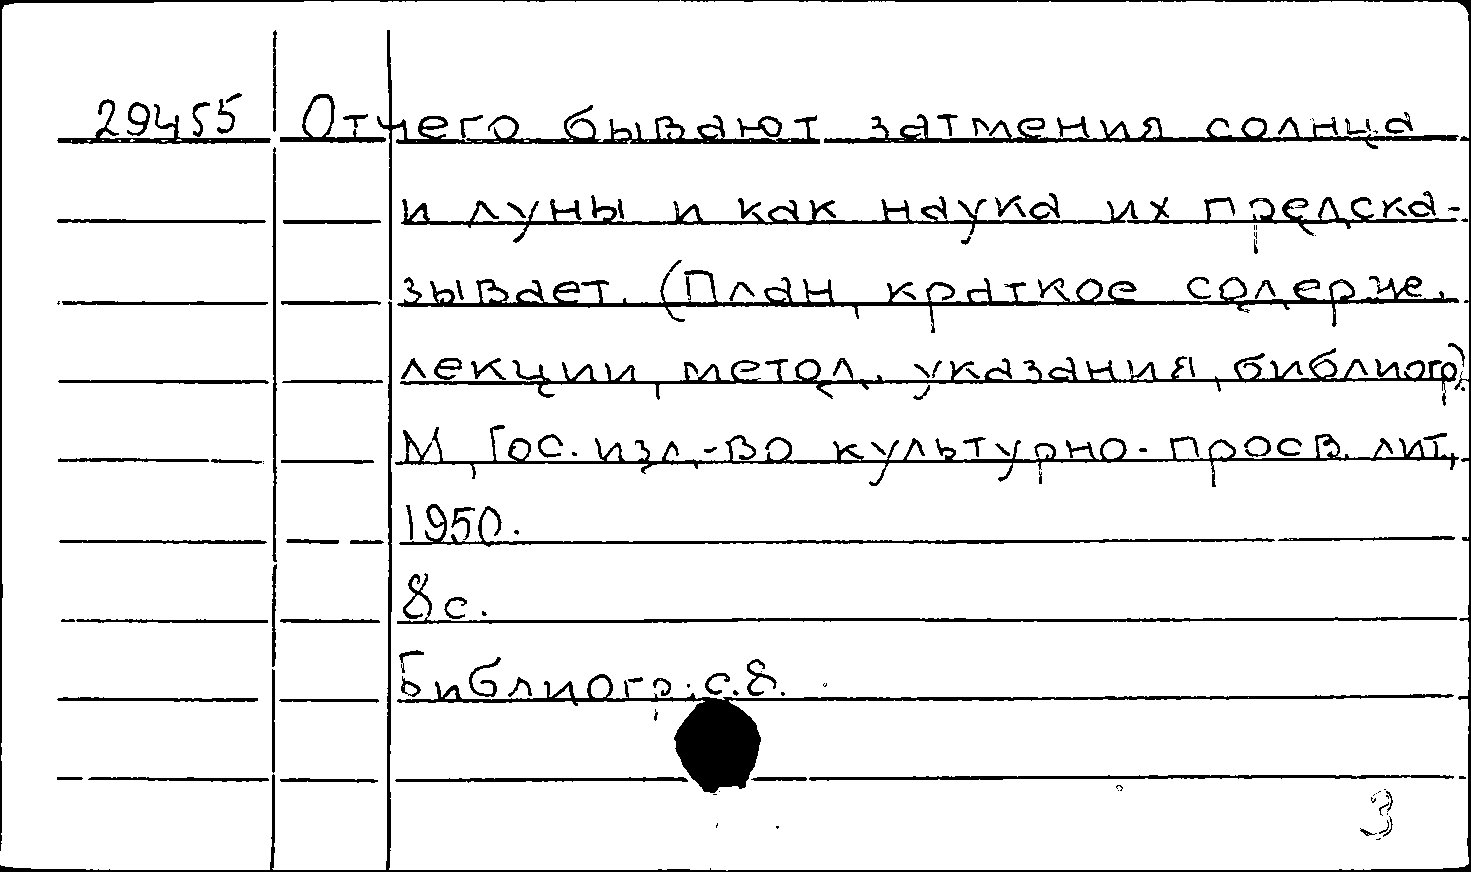 29455 Отчего бывают затмения солнца
и луны и как наука их предска-
зывает. (План, краткое содерж.
лекции, метод. указания, библиогр).
М., Гос. изд-во культурно-просв. лит.,
1950.
8 с.
Библиогр.: с. 8.
3